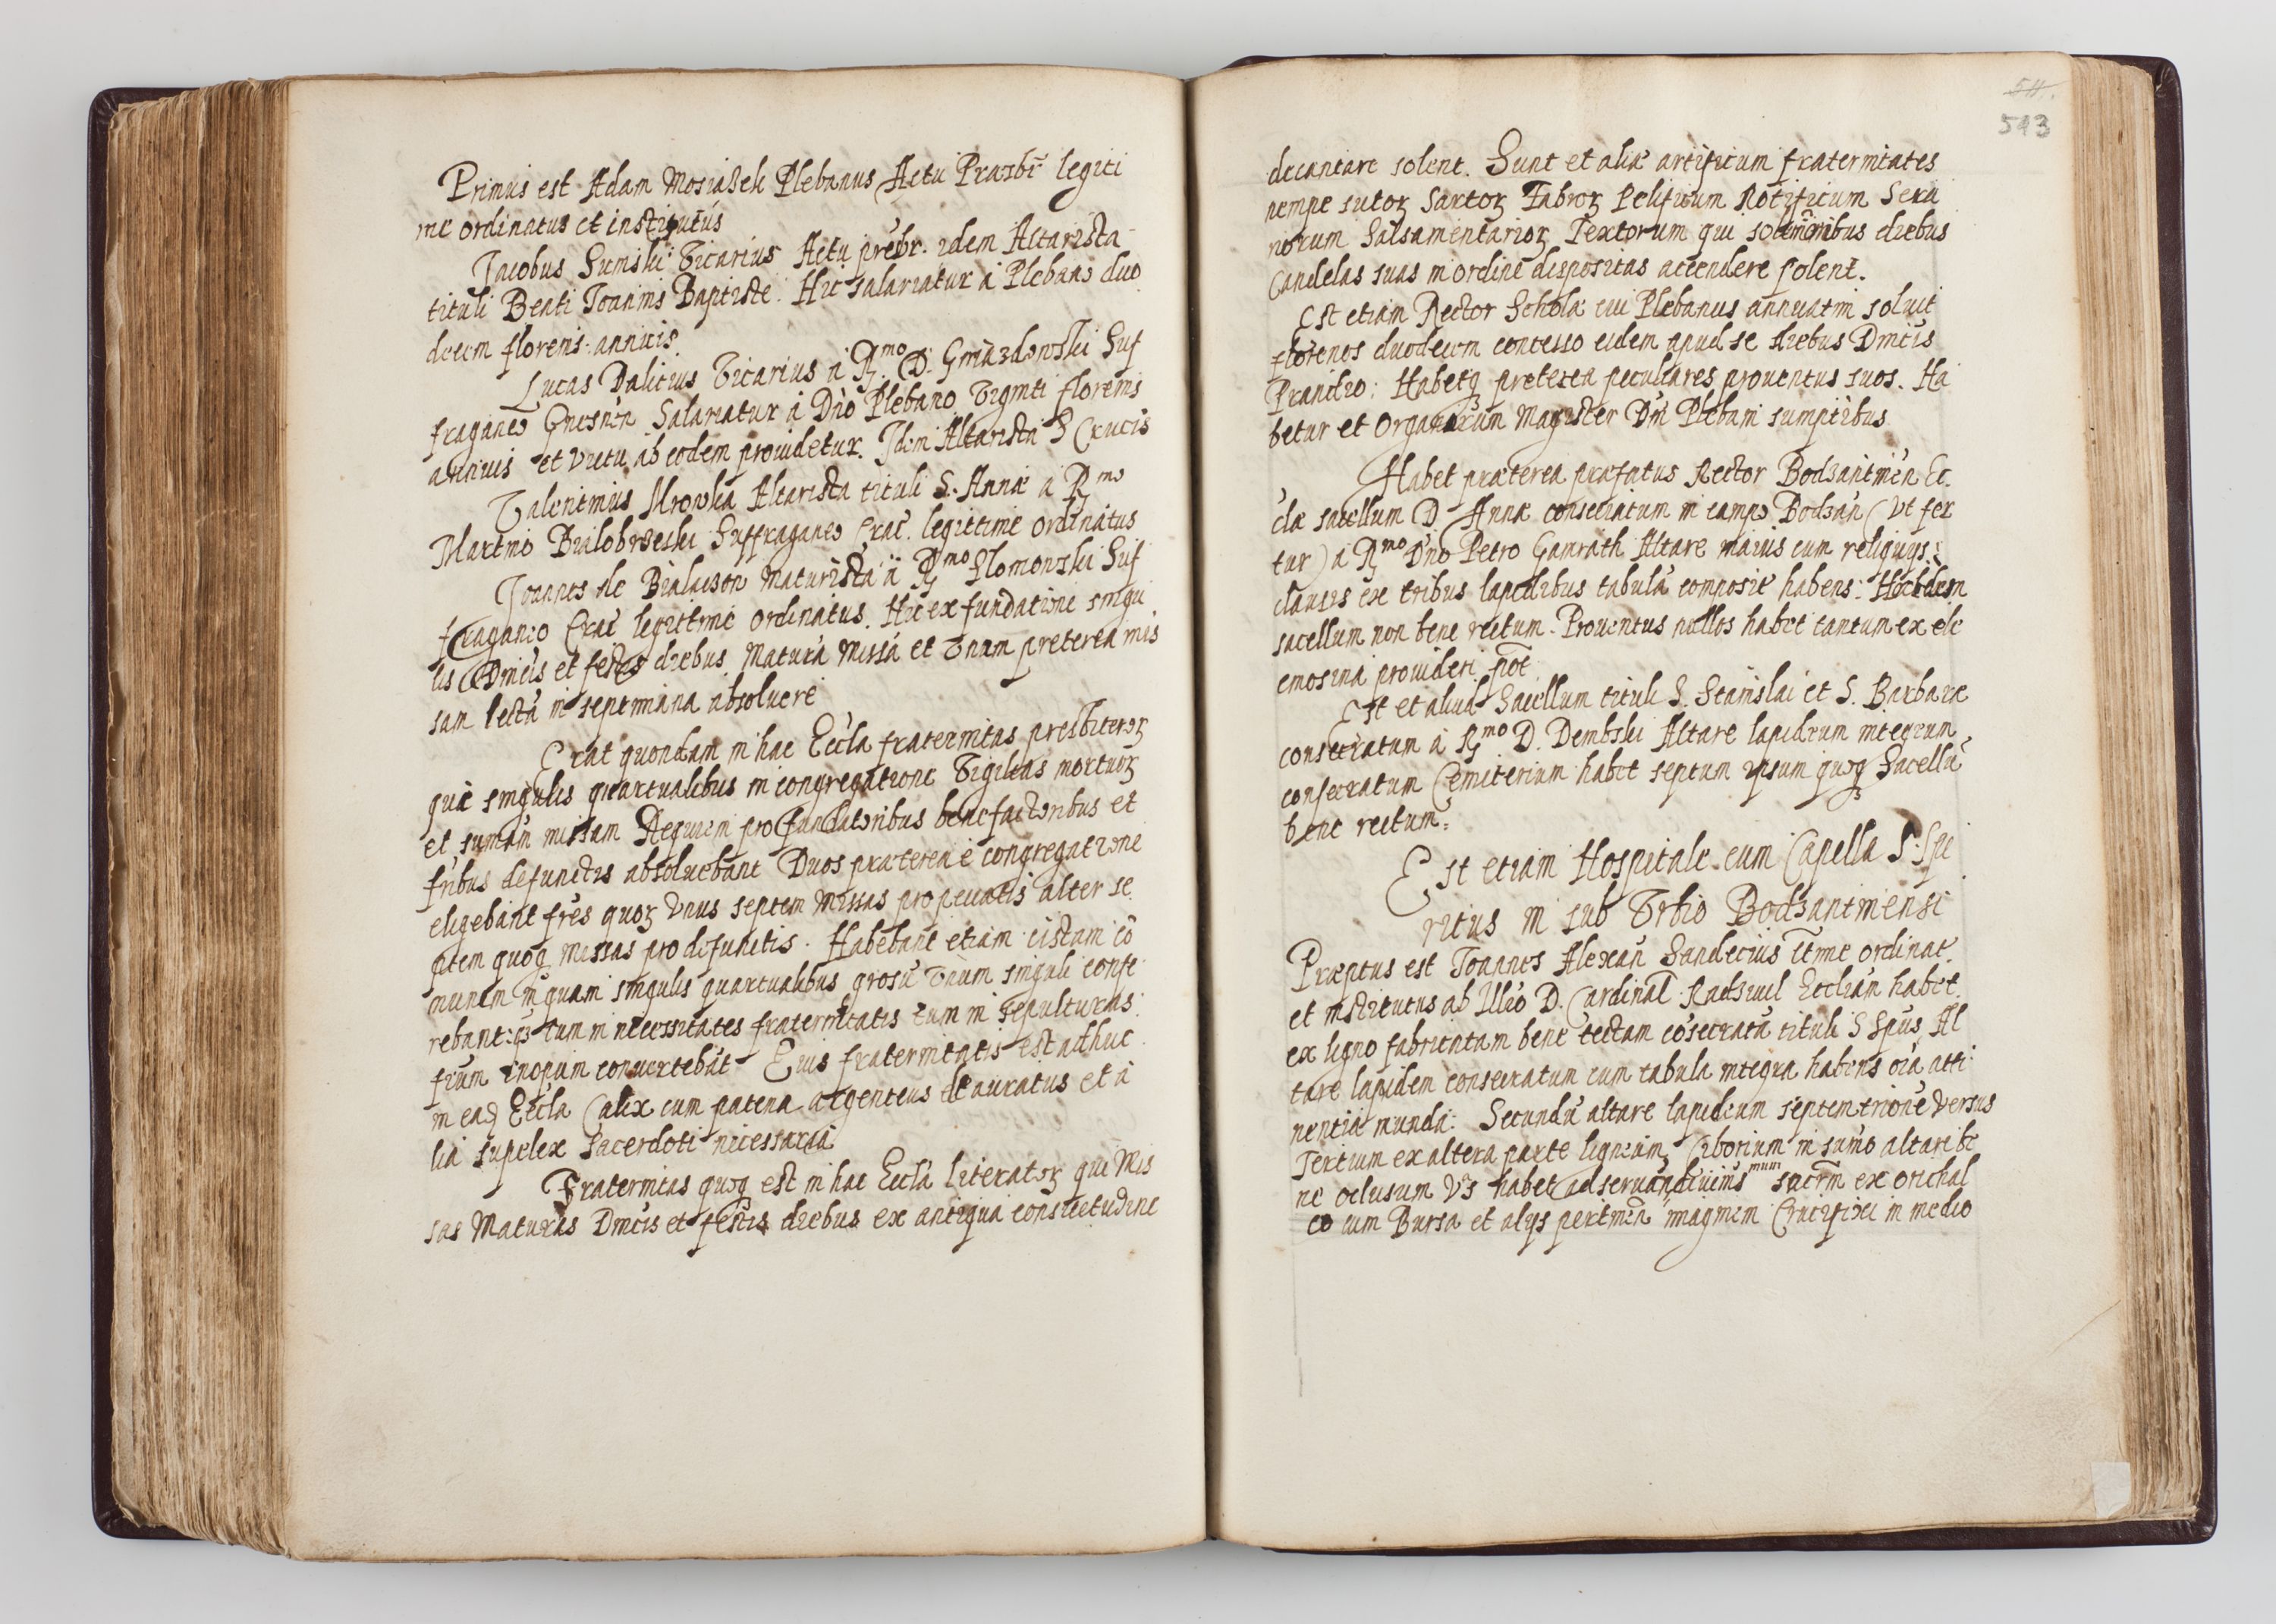 Primus est Adam Mosiaßek Plebanus Actu Præsbr̃ legiti
me ordinatus et institutus
Jacobus Sumski Vicarius Actu prebr. idem Altarista
tituli Beati Joannis Baptiste. Hic salariatur á Plebano duo
decem florenis annuis.
Lucas Dalicius Vicarius á R.mo D. Gniazdowski Suf
fraganeo Gnesnen̄ Salariatur á Dn̄o Plebano Viginti florenis
annuis et victu ab eodem prouidetur. Idem Altarista S Crucis
Valentinus Mrowka Altarista tituli S. Annæ á R.mo
Martino Bialobrzeski Suffraganeo Crac̄. legittime ordinatus
Joannes de Bialaczow Maturista á R.mo Slomowski Suf
fraganeo Crac̄ legittime ordinatus. Hic ex fundatione singu
lis Dnicis et festis diebus Maturā Missā et Vnam preterea mis
sam lectā in septimana absoluere
Erat quondam in hac Eccla fraternitas presbiteroꝝ
quæ singulis quartualibus in congregatione Vigilias mortuoꝝ
et sum̄am missam Requiem pro fundatoribus benefactoribus et
fribus defunctis absoluebant Duos præterea é congregatione
eligebant fr̃es quoꝝ vnus septem Missas pro peccatis alter se
ptem quoqꝫ Missas pro defunctis. Habebant etiam cistam cō
munem in quam singulis quartualibus grosū Vnum singuli confe
rebant: qꝫ tum in necessitates fraternitatis tum in sepulturas
frum inopum conuertebāt Eius fraternitatis est adhuc
in eadꝫ Eccla Calix cum patena argenteus deauratus et á
lia supelex Sacerdoti necessaria
Fraternitas quoqꝫ est in hac Eccla literatoꝝ qui Mis
sas Maturas Dnicis et festis diebus ex antiqua consuetudine
511.
513
decantare solent. Sunt et aliæ artificum fraternitates
nempe sutoꝝ Sartoꝝ Fabroꝝ Pelificum Rotificum Seri
norum Salsamentarioꝝ Textorum qui solemnibus diebus
Candelas suas in ordine dispositas accendere solent.
Est etiam Rector Scholæ cui Plebanus annuatim soluit
florenos duodecim concesso eidem apud se diebus Dnicis
Prandio: Habetqꝫ preterea peculiares prouentus suos. Ha
betur et Organarum Magister Dn̄i Plebani sumptibus
Habet præterea præfatus Rector Bodzantinen̄ Ec
clæ sacellum D Annæ consecratum in campo Bodzan̄ (Vt fer
tur) á R.mo Dn̄o Petro Gamrath Altare maius cum reliquijs
clausis ex tribus lapidibus tabulā composit̄ habens: Hocidem
sacellum non bene tectum. Prouentus nullos habet tantum ex ele
emosina prouideri pōt
Est et aliud Sacellum tituli S. Stanislai et S. Barbare
consecratum á R.mo D. Dembski Altare lapideum integrum
consecratum Cemiterium habet septum ipsum quoqꝫ Sacellū
bene tectum.
Est etiam Hospitale cum Capella S. Spi
ritus in sub Vrbio Bodzantinensi
Præptus est Joannes Alexan̄ Sandecius ltime ordinat.
et institutus ab Illr̄o D. Cardinal Radziuil Eccliam habet
ex ligno fabricatam bene tectam cōsecratā tituli S Spūs Al
tare lapidem consecratum cum tabula integra habens oīa atti
nentia munda: Secundū altare lapideum septemtrione versus
Tertium ex altera parte ligneum, Ciborium in sumō altari be
ne oclusum Vꝫ habet ad seruan̄ diuinismum sacrm̄ ex orichal
co cum Bursa et alijs pertinen̄ imaginem Crucifixi in medio